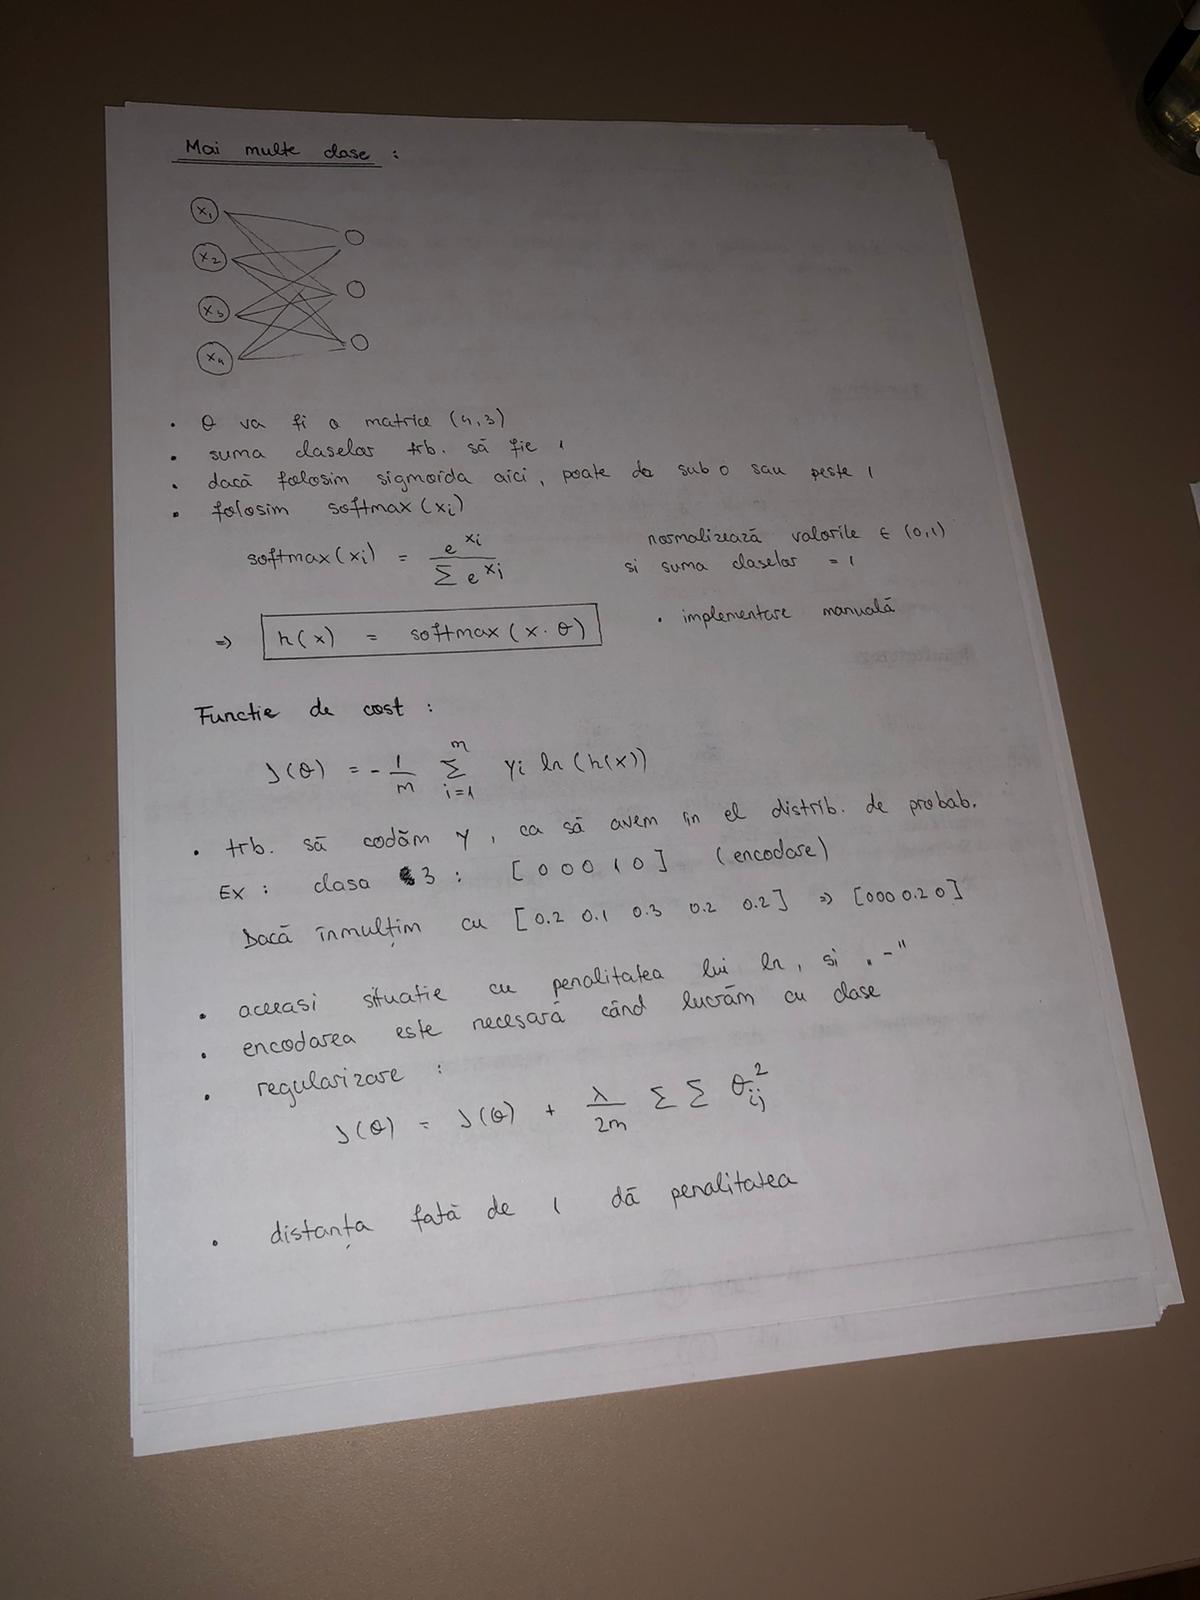 Mai multe clase :
x₁
x₂
x₃
x₄
• θ va fi o matrice (4,3)
• suma claselor trb. să fie 1
• dacă folosim sigmoida aici, poate da sub 0 sau peste 1
• folosim softmax(xi)
softmax(xi) = e^xi / Σ e^xj
normalizează valorile ∈ (0,1)
si suma claselor = 1
⇒ h(x) = softmax(x·θ)
• implementare manuală
Functie de cost :
J(θ) = - 1/m Σ_{i=1}^{m} yi ln(h(x))
• trb. să codăm y, ca să avem în el distrib. de probab.
Ex : clasa 3 : [0 0 0 1 0] (encodare)
Dacă înmulțim cu [0.2 0.1 0.3 0.2 0.2] ⇒ [000 0.2 0]
• aceeasi situatie cu penalitatea lui ln, si „-"
• encodarea este necesară când lucrăm cu clase
• regularizare :
J(θ) = J(θ) + λ/2m Σ Σ θij²
• distanța fată de 1 dă penalitatea